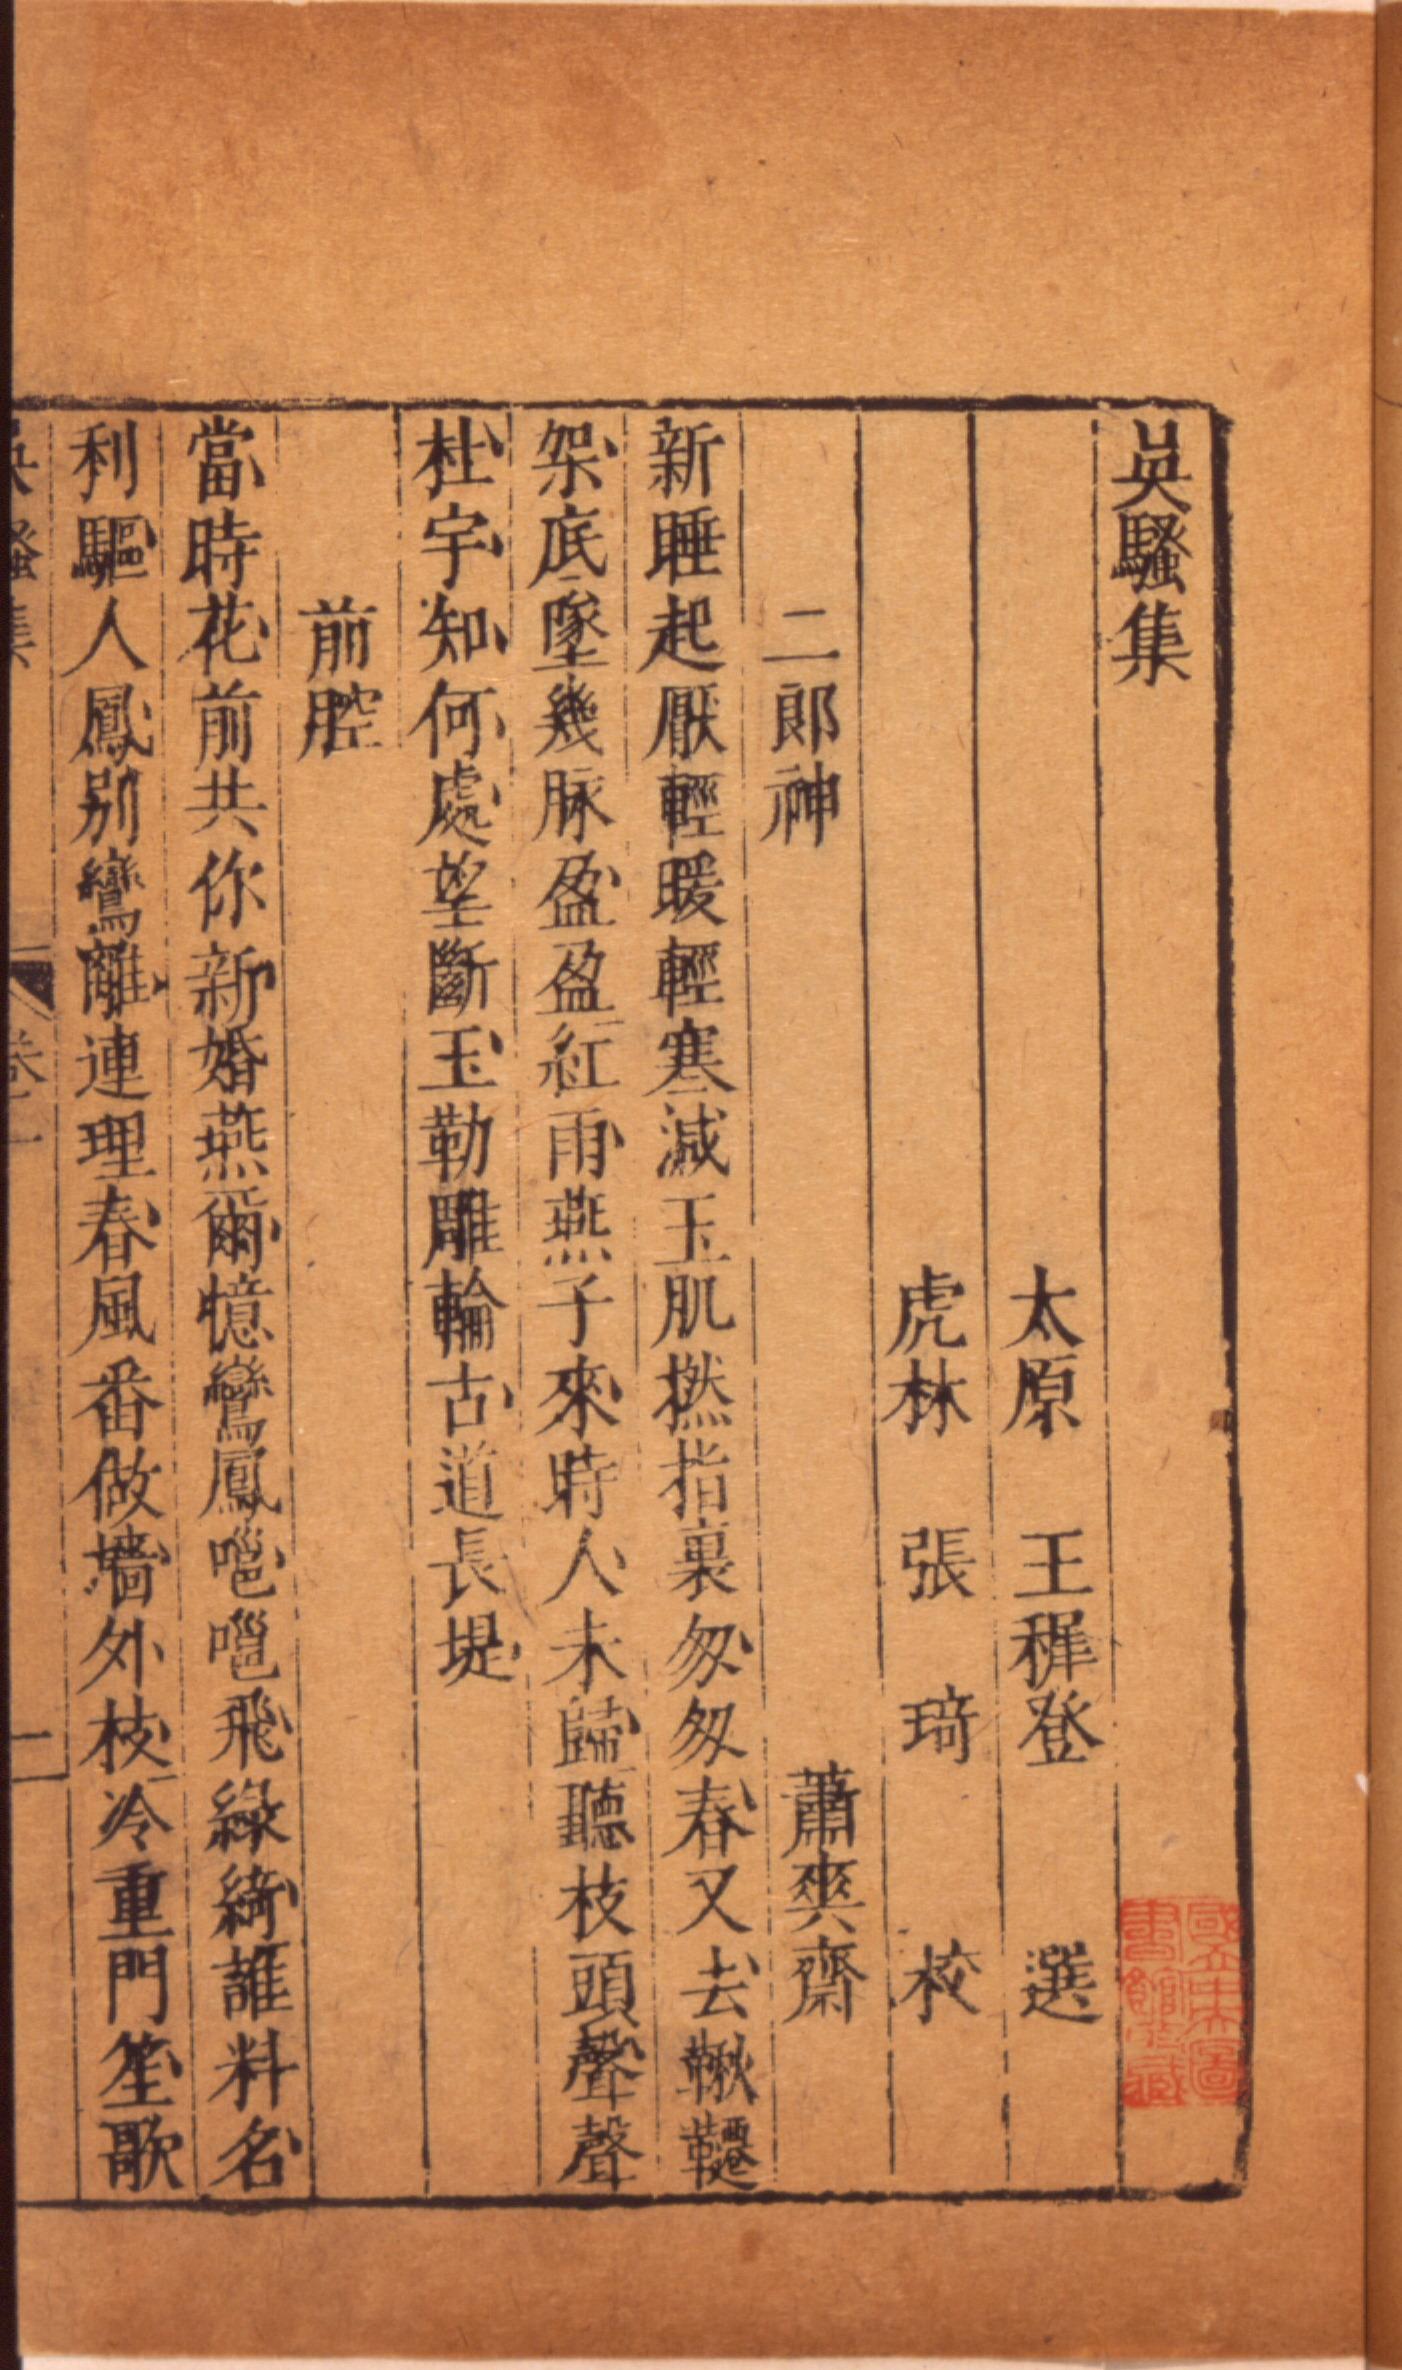 吳騷集
太原 王穉登 選
虎林 張琦 校
二郎神 蕭爽齋
新睡起厭輕暖輕寒減玉肌撚指裏匆匆春又去鞦韆
架底墜幾脉盈盈紅雨燕子來時人未歸聽枝頭聲聲
杜宇知何處望斷玉勒雕輪古道長堤
前腔
當時花前共你新婚燕爾憶鸞鳳嗈嗈飛綠綺誰料名
利驅人鳳別鸞離連理春風番做墻外枝冷重門笙歌
吳騷集 卷一 一
國立中央圖書館收藏